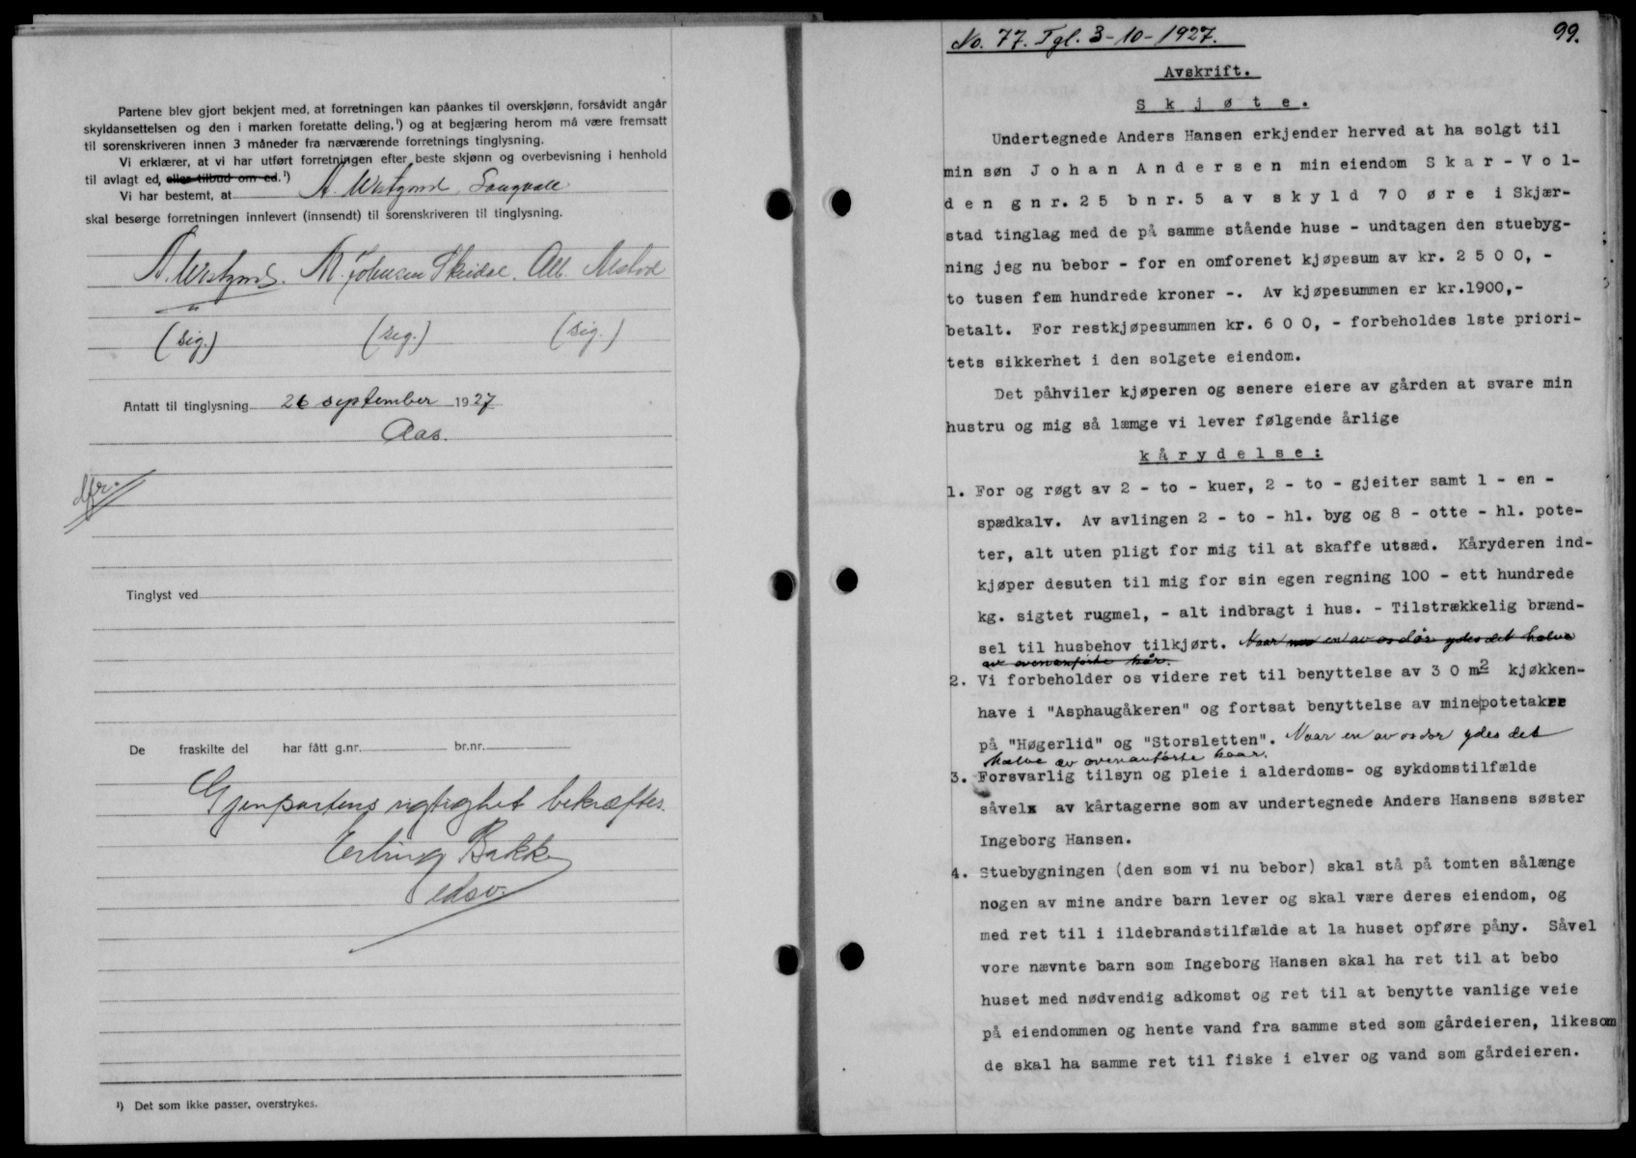 Partene blev gjort bekjent med, at forretningen kan påankes til overskjønn, forsåvidt angår
skyldansettelsen og den i marken foretatte deling,¹) og at begjæring herom må være fremsatt
til sorenskriveren innen 3 måneder fra nærværende forretnings tinglysning.
Vi erklærer, at vi har utført forretningen efter beste skjønn og overbevisning i henhold
til avlagt ed, eller tilbud om ed.¹)
Vi har bestemt, at A. Westgård
skal besørge forretningen innlevert (innsendt) til sorenskriveren til tinglysning.
A. Westgård. M. Johnsen Skeidal. Alb. Alstad
(sig.) (sig.) (sig.)
Antatt til tinglysning 26 september 1927
Aas.
dfr.
Tinglyst ved
De fraskilte del har fått g.nr. br.nr.
Gjenpartens rigtighet bekræftes.
Erling Bakke
edsv.
¹) Det som ikke passer, overstrykes.
No. 77. Tgl. 3-10-1927.
99.
Avskrift.
S k j ø t e.
Undertegnede Anders Hansen erkjender herved at ha solgt til
min søn J o h a n A n d e r s e n min eiendom S k a r - V o l-
d e n g n r. 2 5 b n r. 5 a v s k y l d 7 0 ø r e i Skjær-
stad tinglag med de på samme stående huse - undtagen den stuebyg-
ning jeg nu bebor - for en omforenet kjøpesum av kr. 2 5 0 0, -
to tusen fem hundrede kroner -. Av kjøpesummen er kr.1900,-
betalt. For restkjøpesummen kr. 6 0 0, - forbeholdes 1ste priori-
tets sikkerhet i den solgete eiendom.
Det påhviler kjøperen og senere eiere av gården at svare min
hustru og mig så længe vi lever følgende årlige
k å r y d e l s e :
1. For og røgt av 2 - to - kuer, 2 - to - gjeiter samt 1 - en -
spædkalv. Av avlingen 2 - to - hl. byg og 8 - otte - hl. pote-
ter, alt uten pligt for mig til at skaffe utsæd. Kåryderen ind-
kjøper desuten til mig for sin egen regning 100 - ett hundrede
kg. sigtet rugmel, - alt indbragt i hus. - Tilstrækkelig brænd-
sel til husbehov tilkjørt. Naar en av os dør ydes det halve
av ovenanførte kår.
2. Vi forbeholder os videre ret til benyttelse av 3 0 m2 kjøkken-
have i "Asphaugåkeren" og fortsat benyttelse av mine potetaker
på "Høgerlid" og "Storsletten". Naar en av os dør ydes det
halve av ovenanførte kaar.
3. Forsvarlig tilsyn og pleie i alderdoms- og sykdomstilfælde
såvelx av kårtagerne som av undertegnede Anders Hansens søster
Ingeborg Hansen.
4. Stuebygningen (den som vi nu bebor) skal stå på tomten sålænge
nogen av mine andre barn lever og skal være deres eiendom, og
med ret til i ildebrandstilfælde at la huset opføre påny. Såvel
vore nævnte barn som Ingeborg Hansen skal ha ret til at bebo
huset med nødvendig adkomst og ret til at benytte vanlige veie
på eiendommen og hente vand fra samme sted som gårdeieren, likesom
de skal ha samme ret til fiske i elver og vand som gårdeieren.